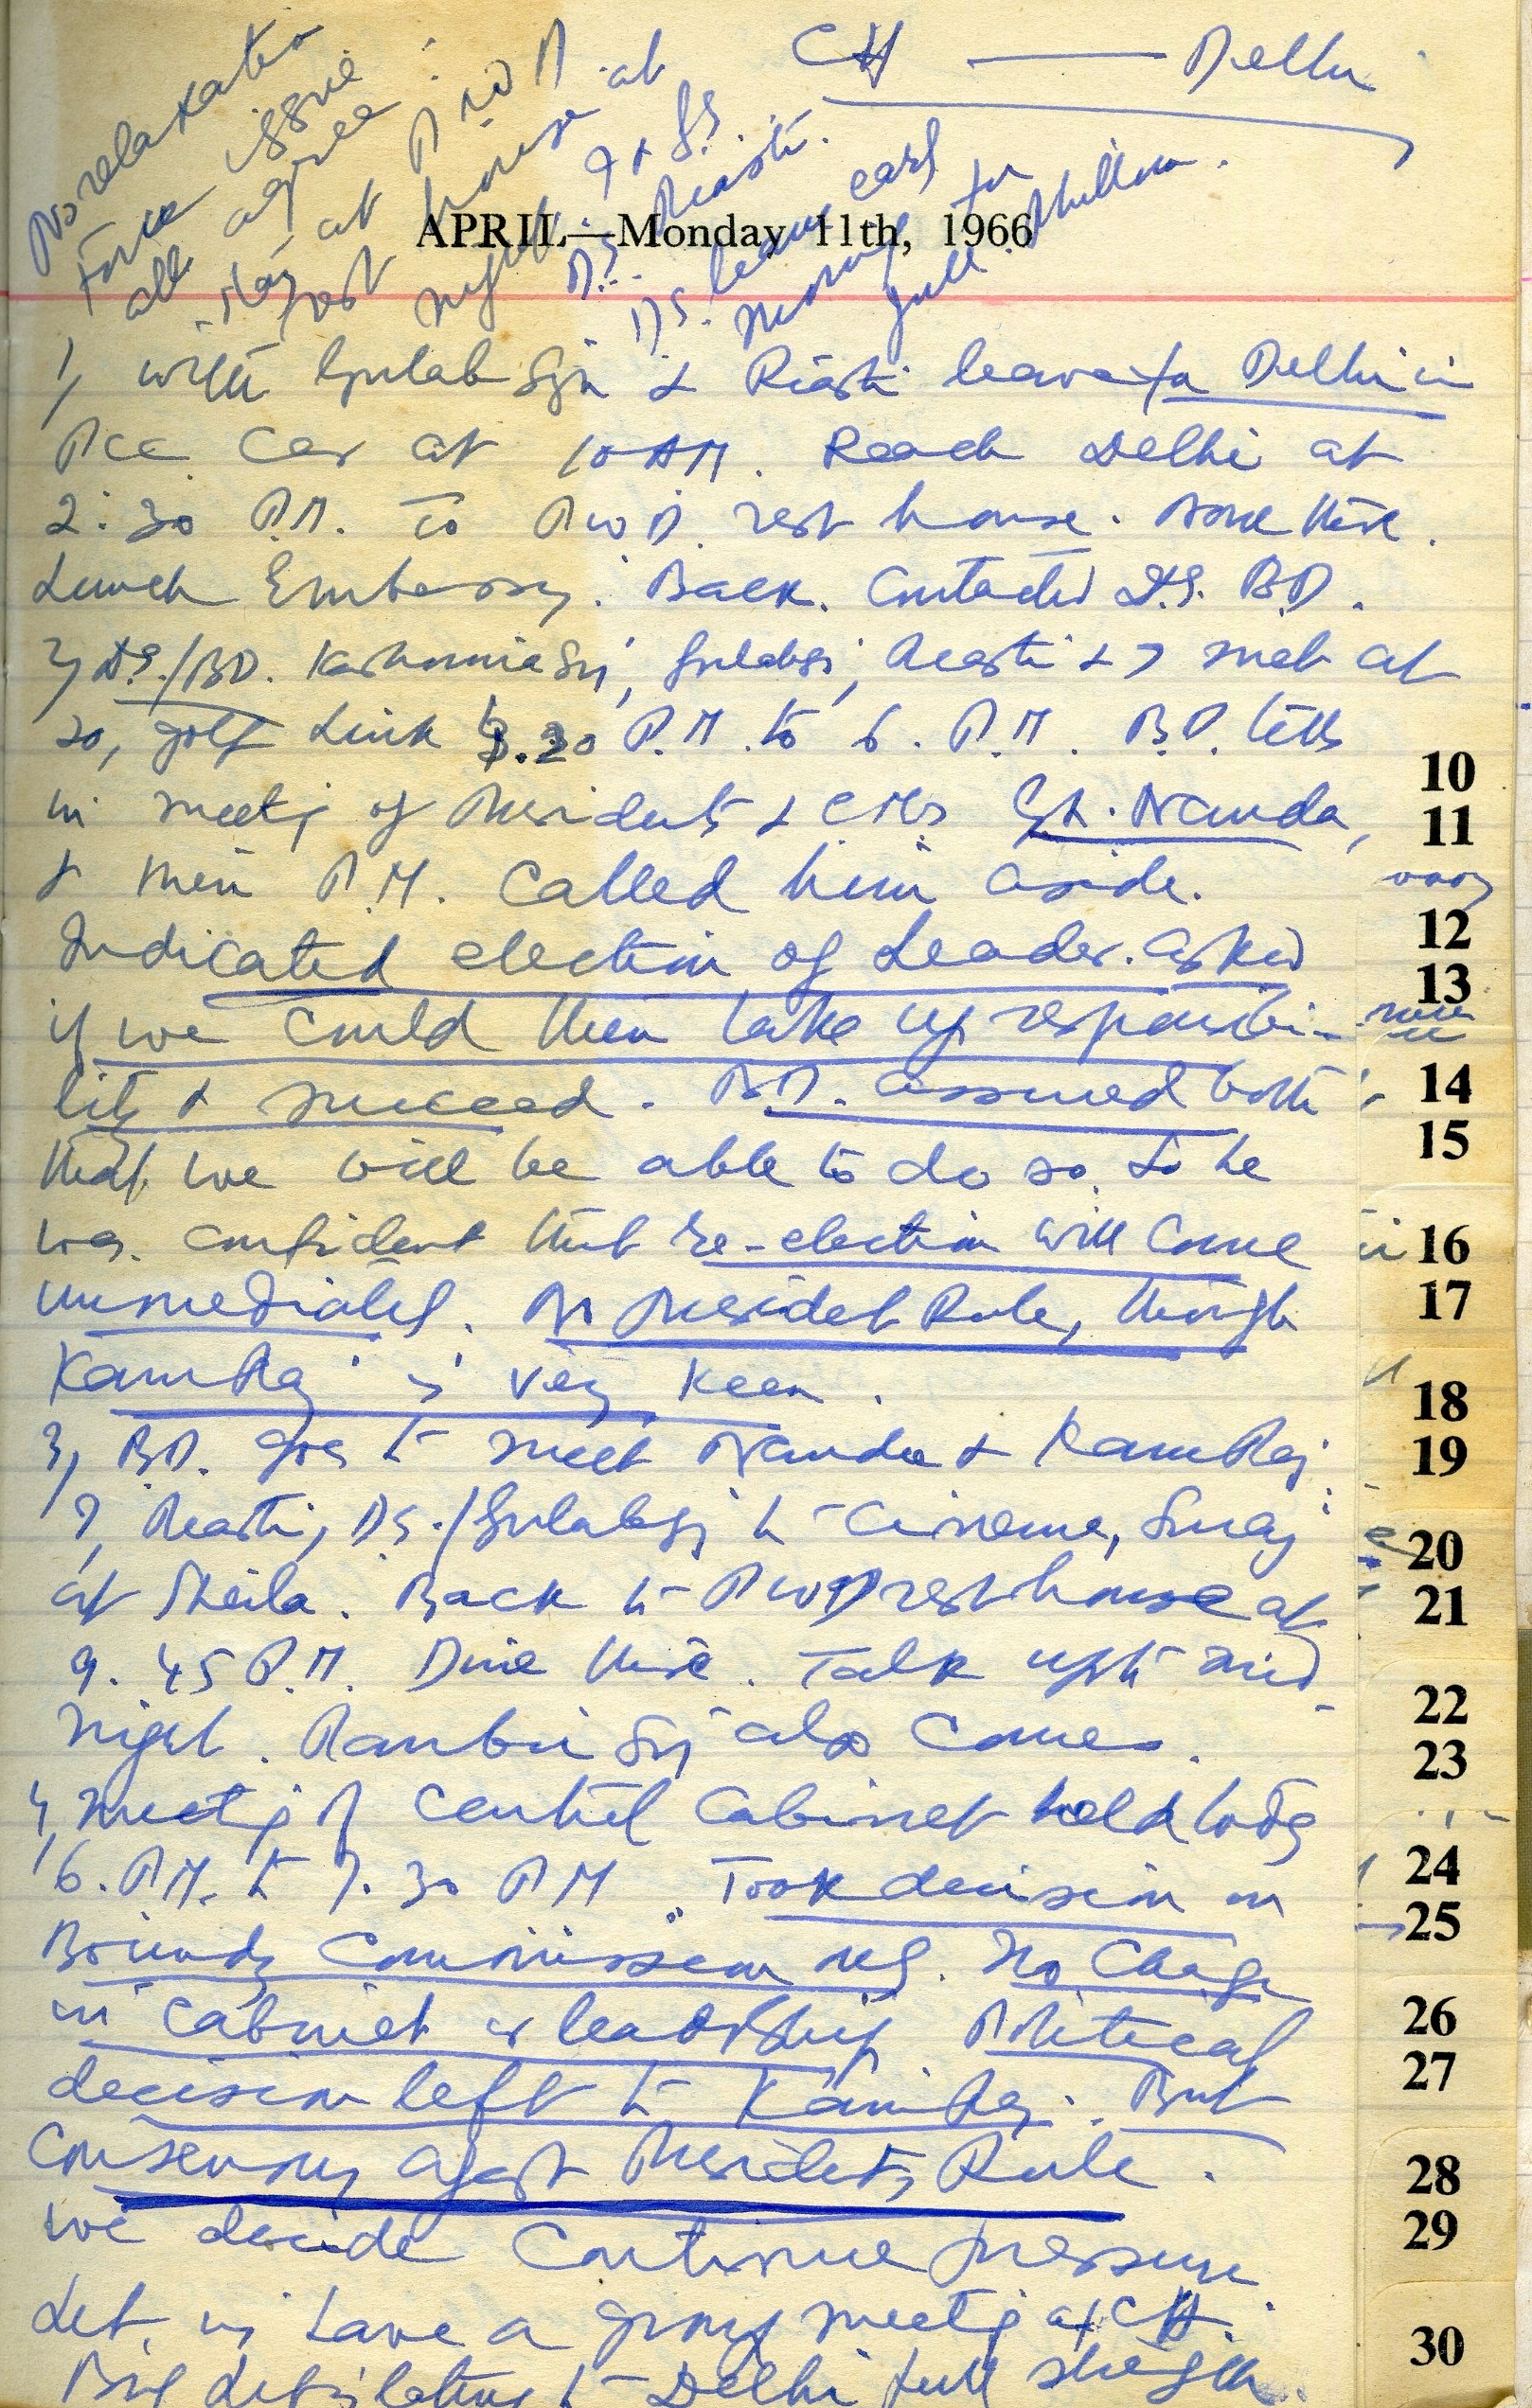 CH — Delhi
APRIL—Monday 11th, 1966
1) With Gulab Sgh & Piasti leave for Delhi in
Car at 10 AM. Reach Delhi at
2.30 P.M. To P.W.D. rest house. None there.
Lunch Embassy. Back. Contacted D.S. B.D.
2) D.S./B.D. Sgh, Gulabsgh, & I met at
20, Golf Link P.M. to 6. P.M. B.D. tells
in meetg of Presidents & CMs G.L. Nanda,
& then P.M. Called him aside.
Indicated election of Leader. Asked
if we could then take up responsibi-
lity & succeed. B.D. assured both
that we will be able to do so. So he
was confident that re-election will come
immediately. No President Rule, though
KamRaj is very keen.
3) B.D. goes to meet Nanda & KamRaj
I, D.S./Gulabsgh to Cinema, Suraj
at Sheila. Back to PWD rest house at
9.45 P.M. Dine there. Talk upto mid
night. Ranbir Sgh also comes.
4) Meetg of Central Cabinet held today
6. P.M. to 7.30 PM. Took decision on
Boundy Commission only. No Change
in Cabinet or leadership. Political
decision left to KamRaj. But
Consensus agast Presidents Rule.
We decide Continue pressure
Let us have a group meetg at CH.
Big to Delhi full strength.
No relaxation
Force issue
all agree
stay at P.W.D
rest house at
night. I & GS.
D.S.
DS. leaves early
morning for
Phillaur.
10
11
12
13
14
15
16
17
18
19
20
21
22
23
24
25
26
27
28
29
30